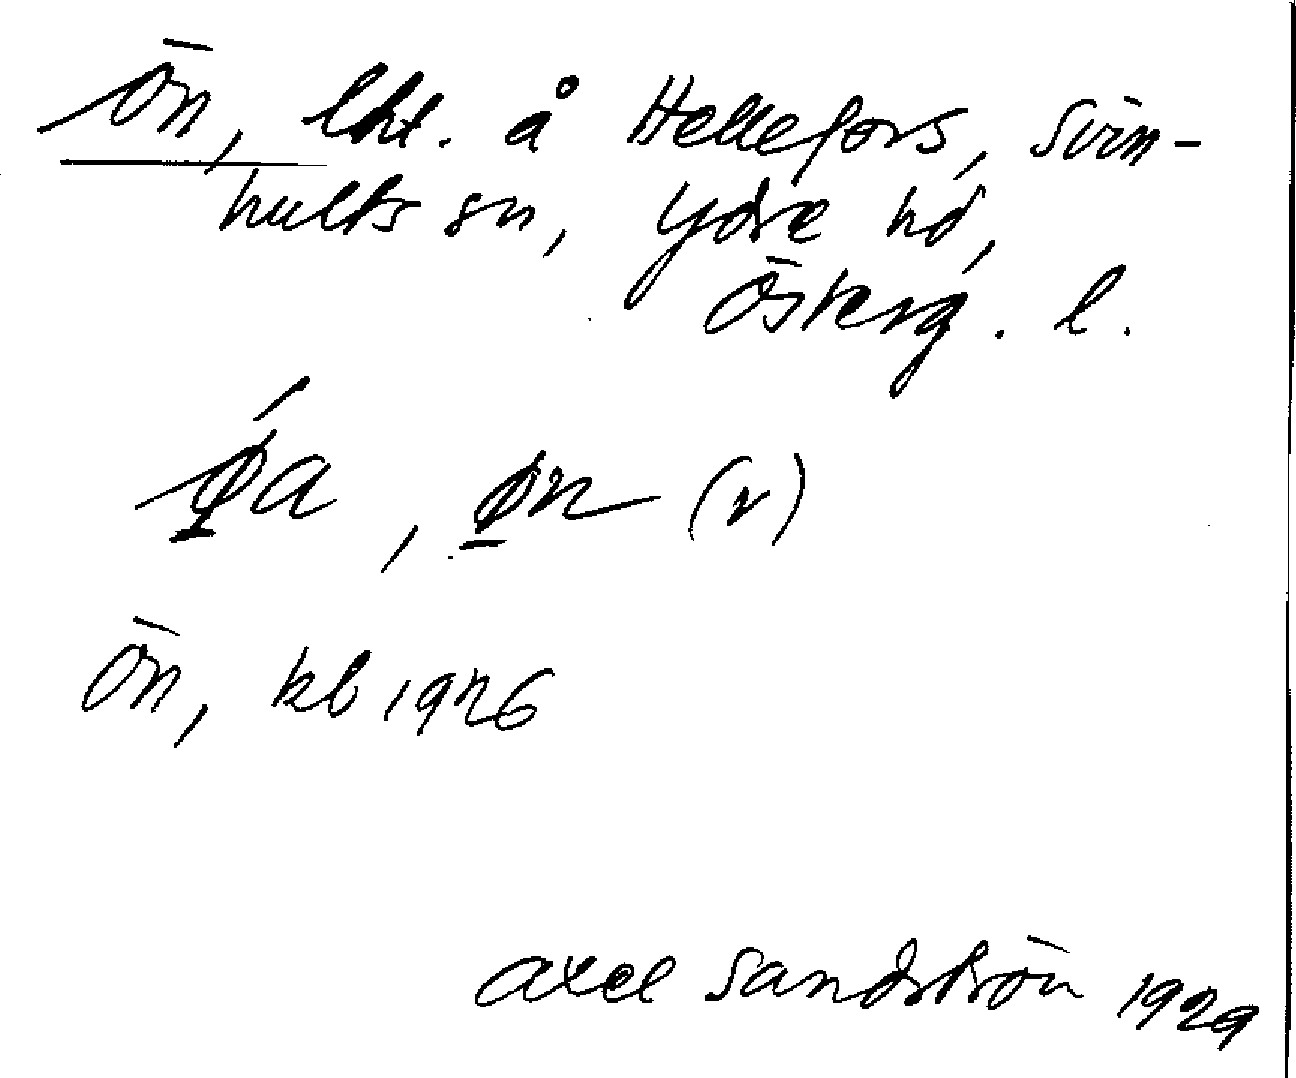 Ön, lht. å Hellefors, Svin-
hults sn, Ydre hd,
Österg. l.
ǿ̱a, ø̱n (r)
Ön, kb 1926
Axel Sandström 1929